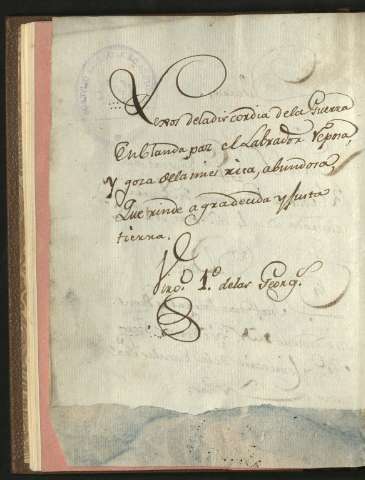 Lexos dela discordia dela Guerra
En blanda paz el Labrador reposa,
y goza dela mies rica, abundosa,
Que rinde agradecida y justa
tierra.
Virg.º 1.º delas Georg.s